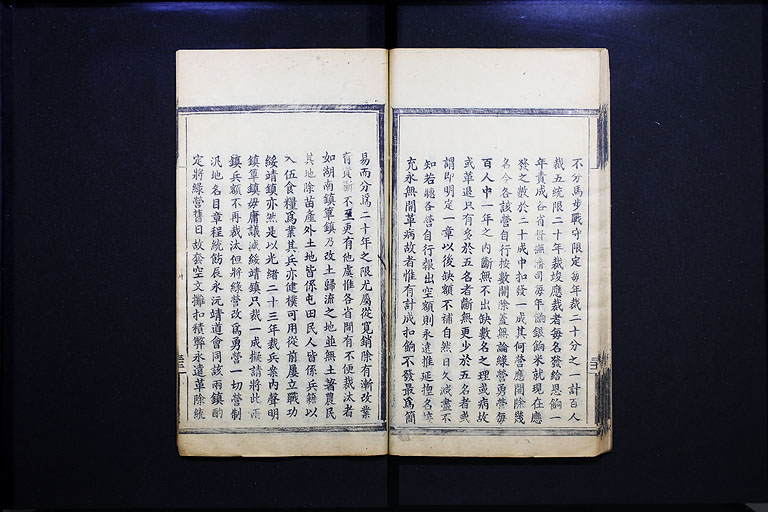 不分馬步戰守限定每年裁二十分之一計百人
裁五統限二十年裁竣應裁者每名發給恩餉一
年責成各省督撫藩司每年餉銀餉米就現在應
發之數於二十成中扣發一成其何營應開除幾
名令各該營自行按數開除蓋無論綠營勇營每
百人中一年之內斷無不出缺數名之理或病故
或革退只有多於五名者斷無更少於五名者或
謂即明定一章以後缺額不補自然日久減盡不
知若聽各營自行報出空額則永遠推延捏名
充永無開革病故者惟有計成扣餉不發最為簡
易而分為二十年之限尤屬從寬銷除有漸改業
有資斷不至更有他虞惟各省間有不便裁汰者
如湖南鎮筸鎮乃改土歸流之地並無土著農民
其地除苗產外土地皆係屯田民人皆係兵籍以
入伍食糧為業其兵亦健樸可用從前屢立戰功
綏靖鎮亦然是以光緒二十三年裁兵案內聲明
鎮筸鎮毋庸議減綏靖鎮只裁一成擬請將此兩
鎮兵額不再裁汰但將綠營改為勇營一切營制
汛地名目章程統飭辰永沅靖道會同該兩鎮酌
定將綠營舊日故套空文攤扣積弊永遠革除統